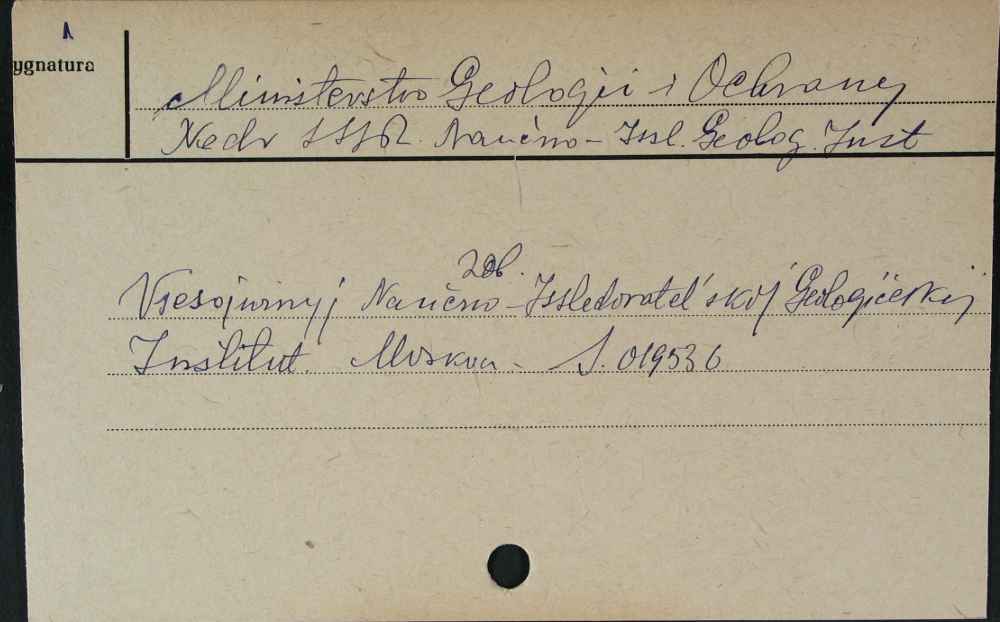 1
ygnatura
Ministerstvo Geologii i Ochrany
Nedr SSSR. Naučno-Issl. Geolog. Inst
zob.
Vsesojuznyj Naučno-Issledovatel'skij Geologičeskij
Institut. Moskva - S. 019536